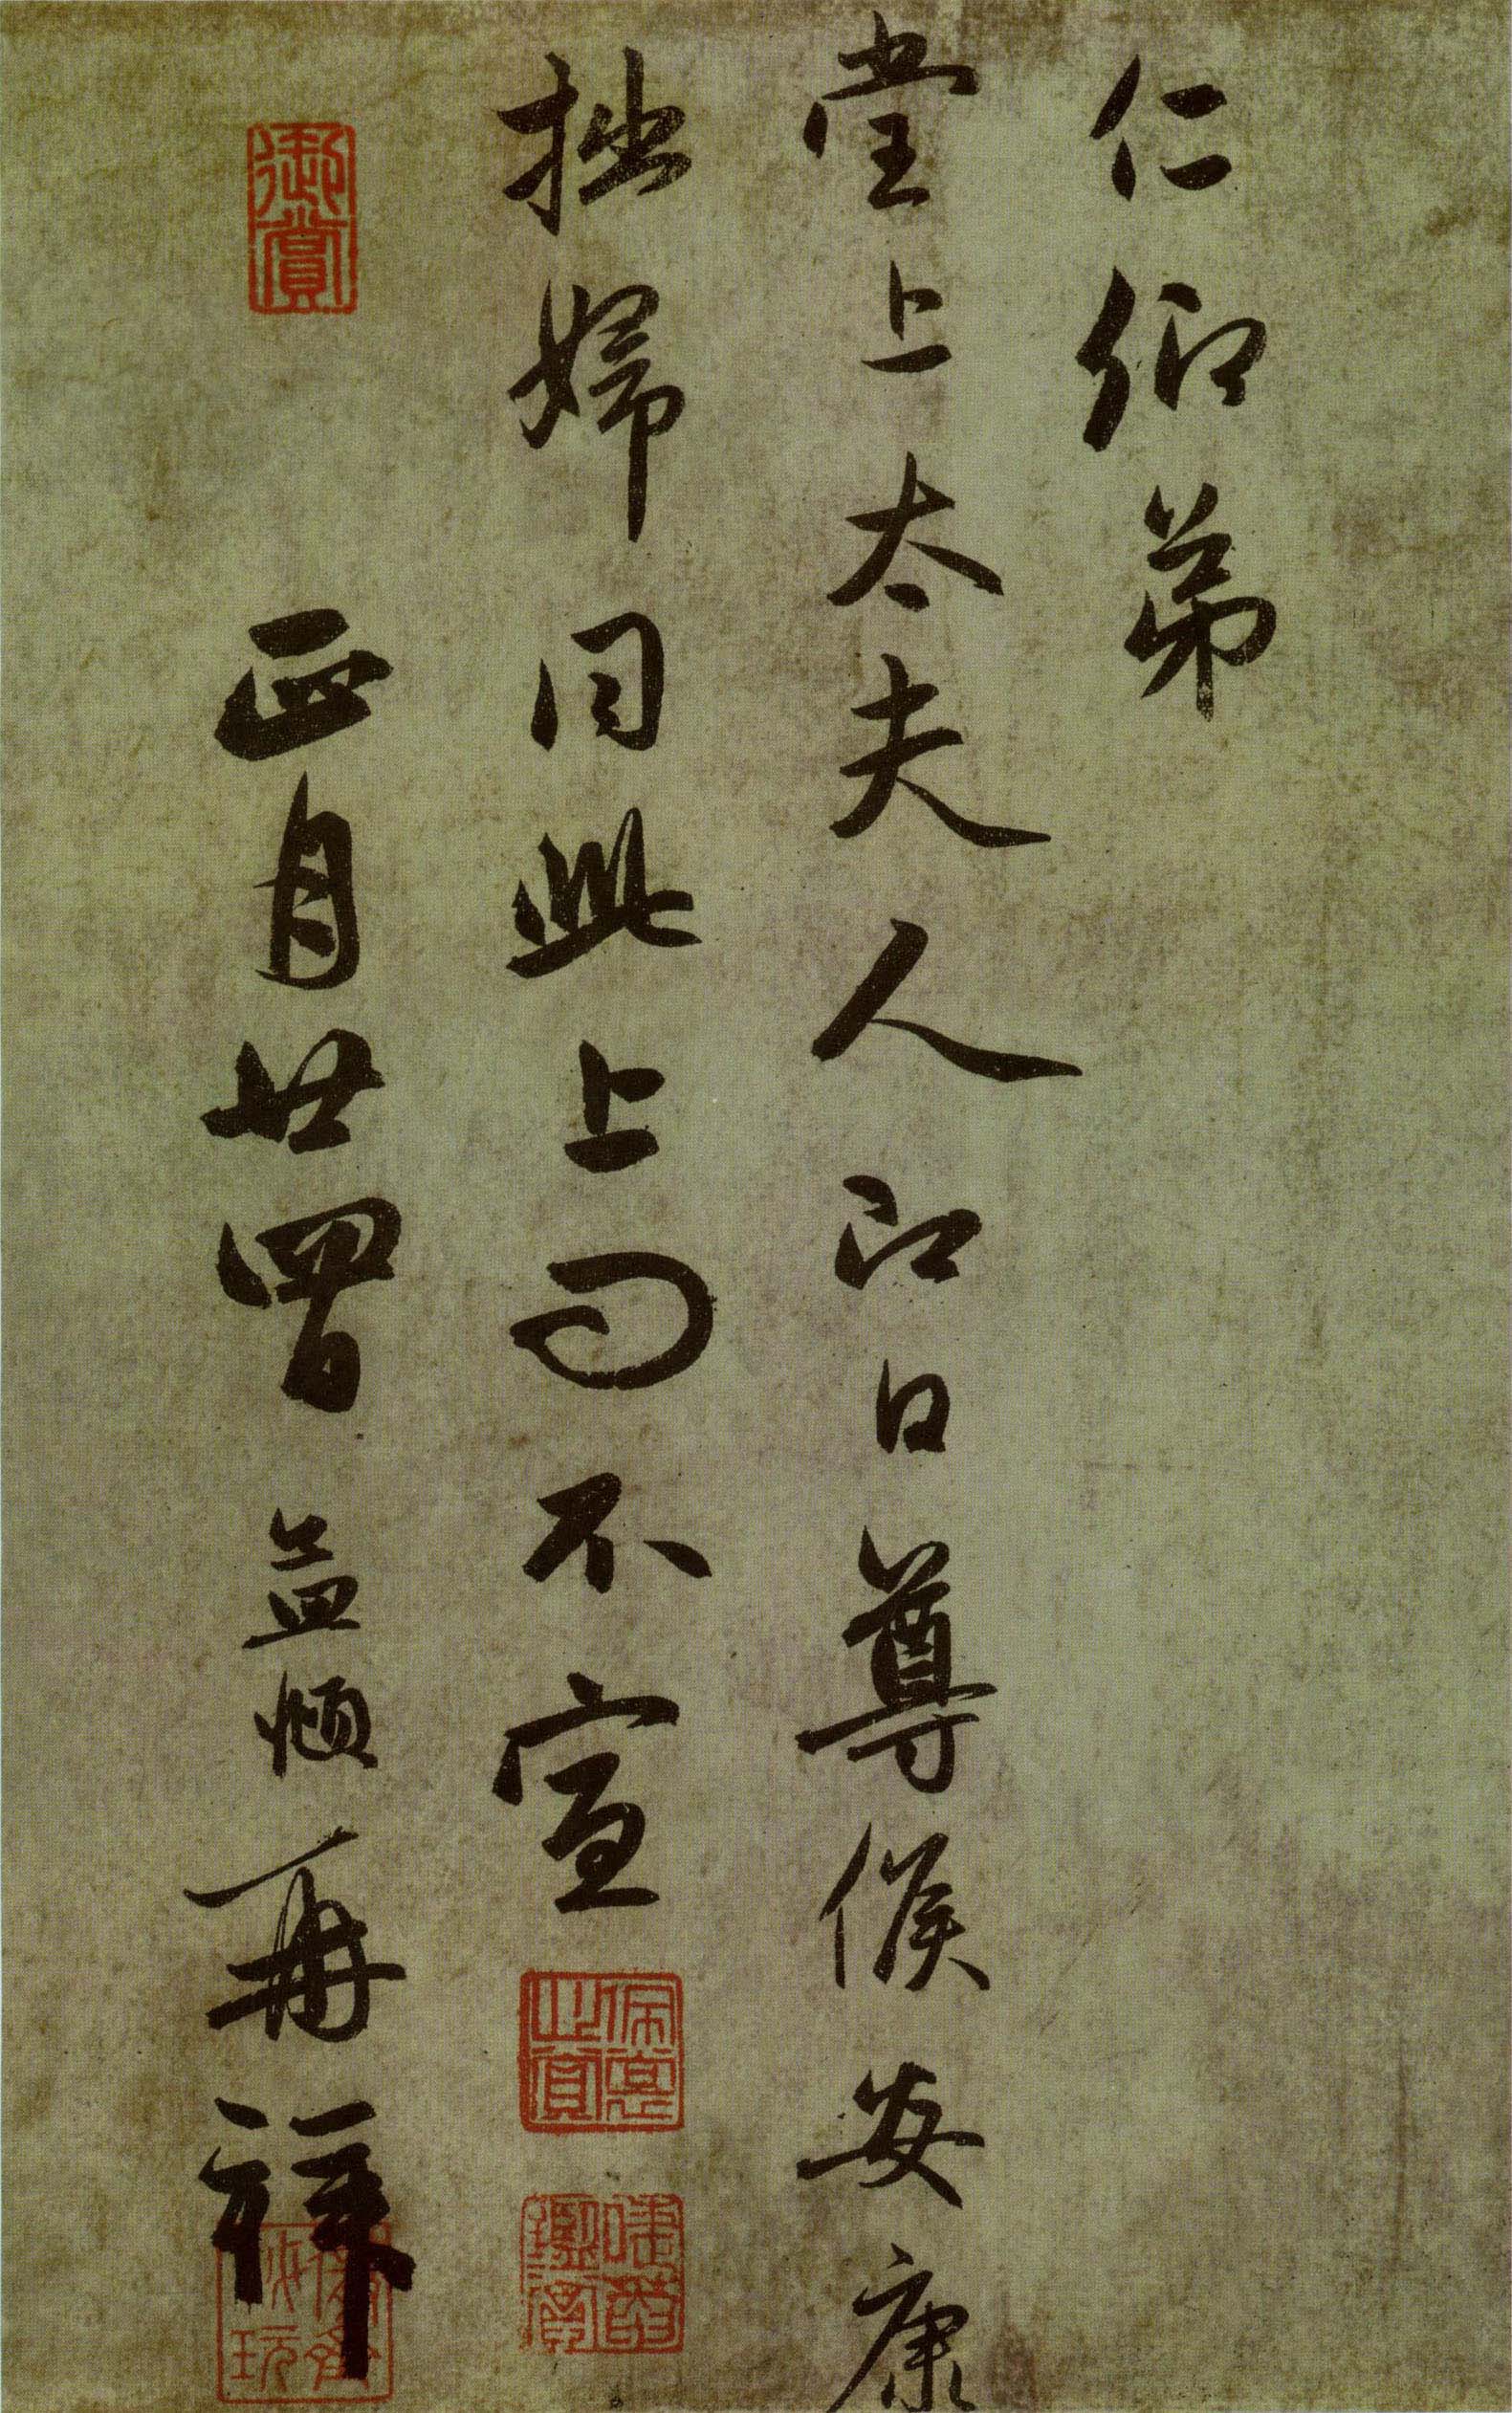 仁卿弟
堂上太夫人即日尊候安康
拙婦同此上問不宣
正月廿四日 益頓再拜
御賞